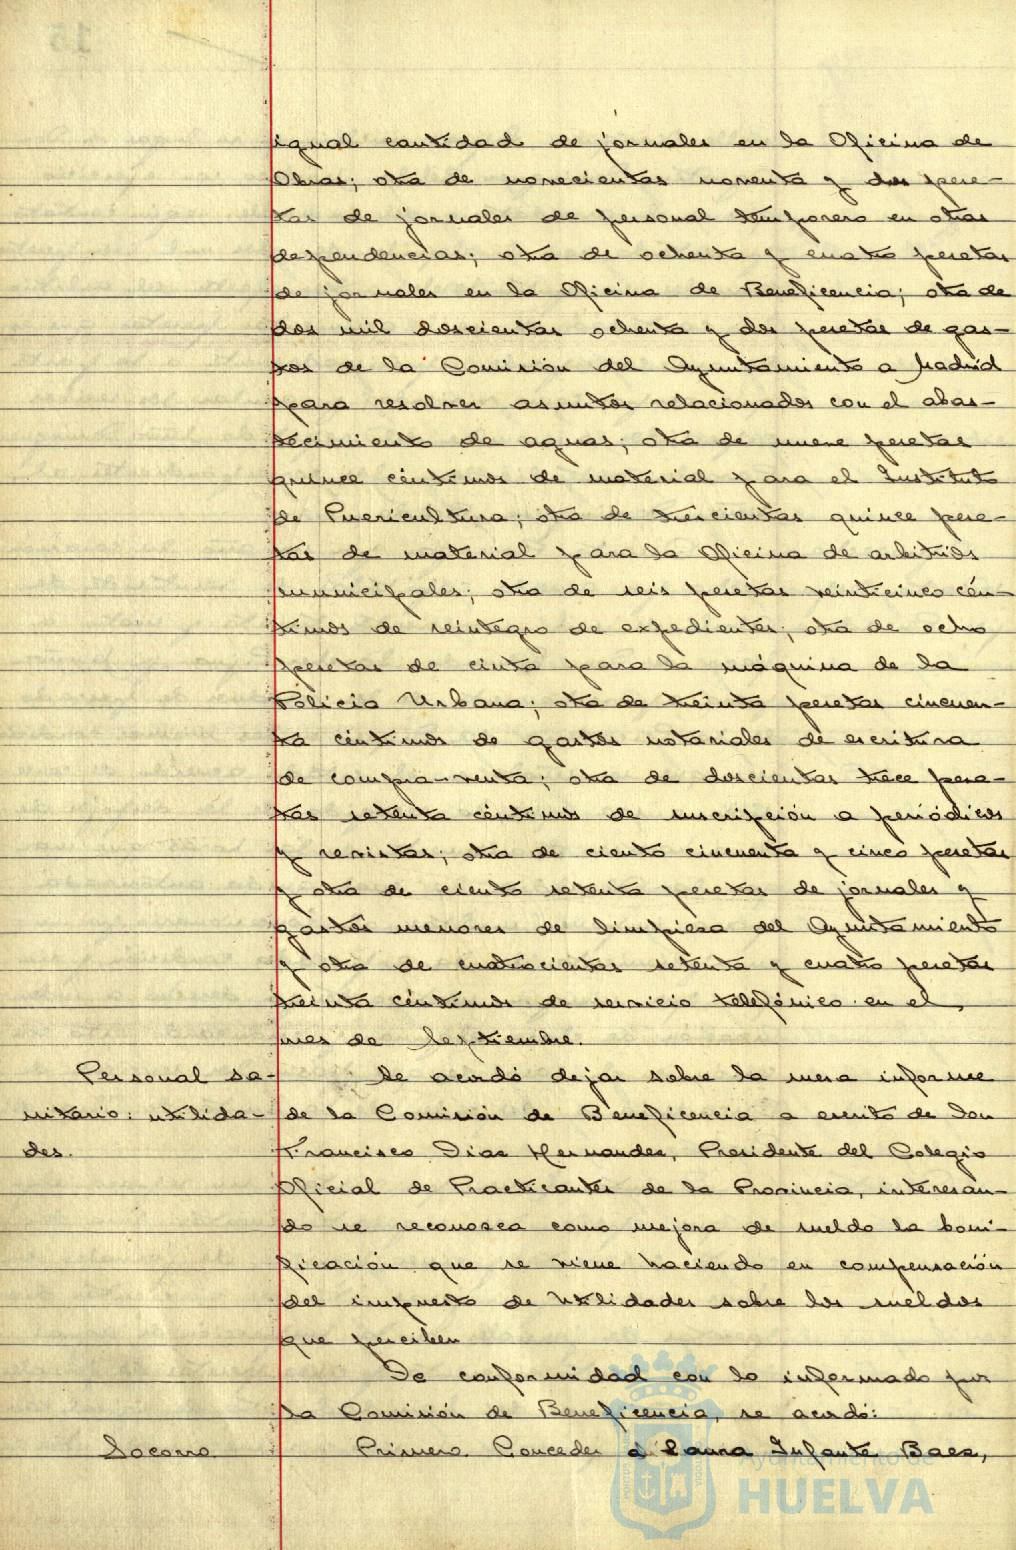 igual cantidad de jornales en la Oficina de
Obras; otra de novecientas noventa y dos pese-
tas de jornales de personal temporero en otras
dependencias; otra de ochenta y cuatro pesetas
de jornales en la Oficina de Beneficencia; otra de
dos mil doscientas ochenta y dos pesetas de gas-
tos de la Comisión del Ayuntamiento a Madrid
para resolver asuntos relacionados con el abas-
tecimiento de aguas; otra de nueve pesetas
quince céntimos de material para el Instituto
de Puericultura; otra de trescientas quince pese-
tas de material para la Oficina de arbitrios
municipales; otra de seis pesetas veinticinco cén-
timos de reintegro de expedientes; otra de ocho
pesetas de cinta para la máquina de la
Policia Urbana; otra de treinta pesetas cincuen-
ta céntimos de gastos notariales de escritura
de compra-venta; otra de doscientas trece pese-
tas setenta céntimos de suscripción a periódicos
y revistas; otra de ciento cincuenta y cinco pesetas
y otra de ciento setenta pesetas de jornales y
gastos menores de limpieza del Ayuntamiento
y otra de cuatrocientas setenta y cuatro pesetas
treinta céntimos de servicio telefónico en el
mes de Septiembre.
Personal sa-
nitario: utilida-
des.
Se acordó dejar sobre la mesa informe
de la Comisión de Beneficencia a escrito de Don
Francisco Diaz Hernandez, Presidente del Colegio
Oficial de Practicantes de la Provincia, interesan-
do se reconozca como mejora de sueldo la boni-
ficación que se viene haciendo en compensación
del impuesto de Utilidades sobre los sueldos
que perciben
De conformidad con lo informado por
la Comisión de Beneficencia, se acordó:
Socorro
Primero. Conceder a Laura Infante Baez,
Ayuntamiento de
HUELVA